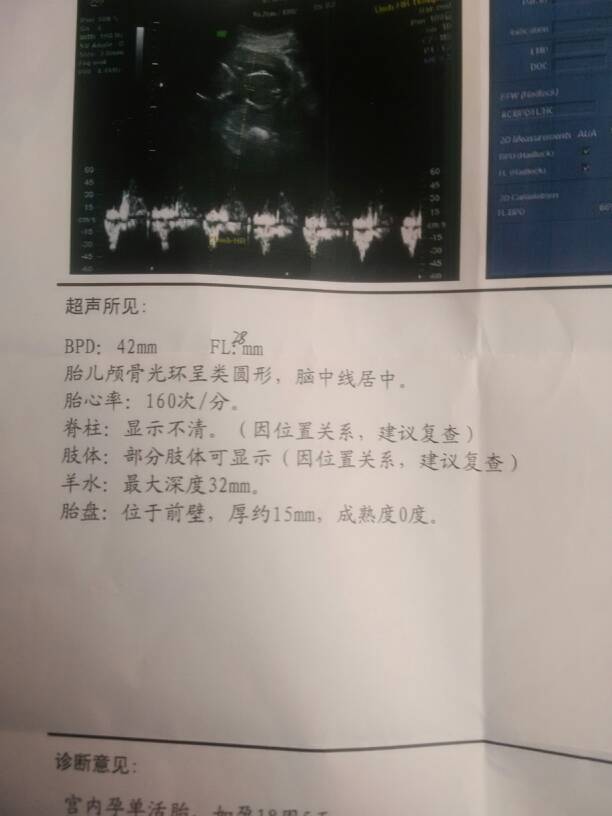 60
45
30
15
cm/s
-15
-30
-45
-60
60
45
30
15
cm/s
-15
-30
-45
-60
Indication
LMP
DOC
EFW (Hadlock)
AC/BPD/FL/HC
2D Measurements AUA
BPD (Hadlock)
FL (Hadlock)
2D Calculations
FL/BPD
超声所见:
BPD: 42mm FL: 28mm
胎儿颅骨光环呈类圆形，脑中线居中。
胎心率: 160次/分。
脊柱: 显示不清。(因位置关系，建议复查)
肢体: 部分肢体可显示(因位置关系，建议复查)
羊水: 最大深度32mm。
胎盘: 位于前壁，厚约15mm，成熟度0度。
诊断意见:
宫内孕单活胎，如孕18周